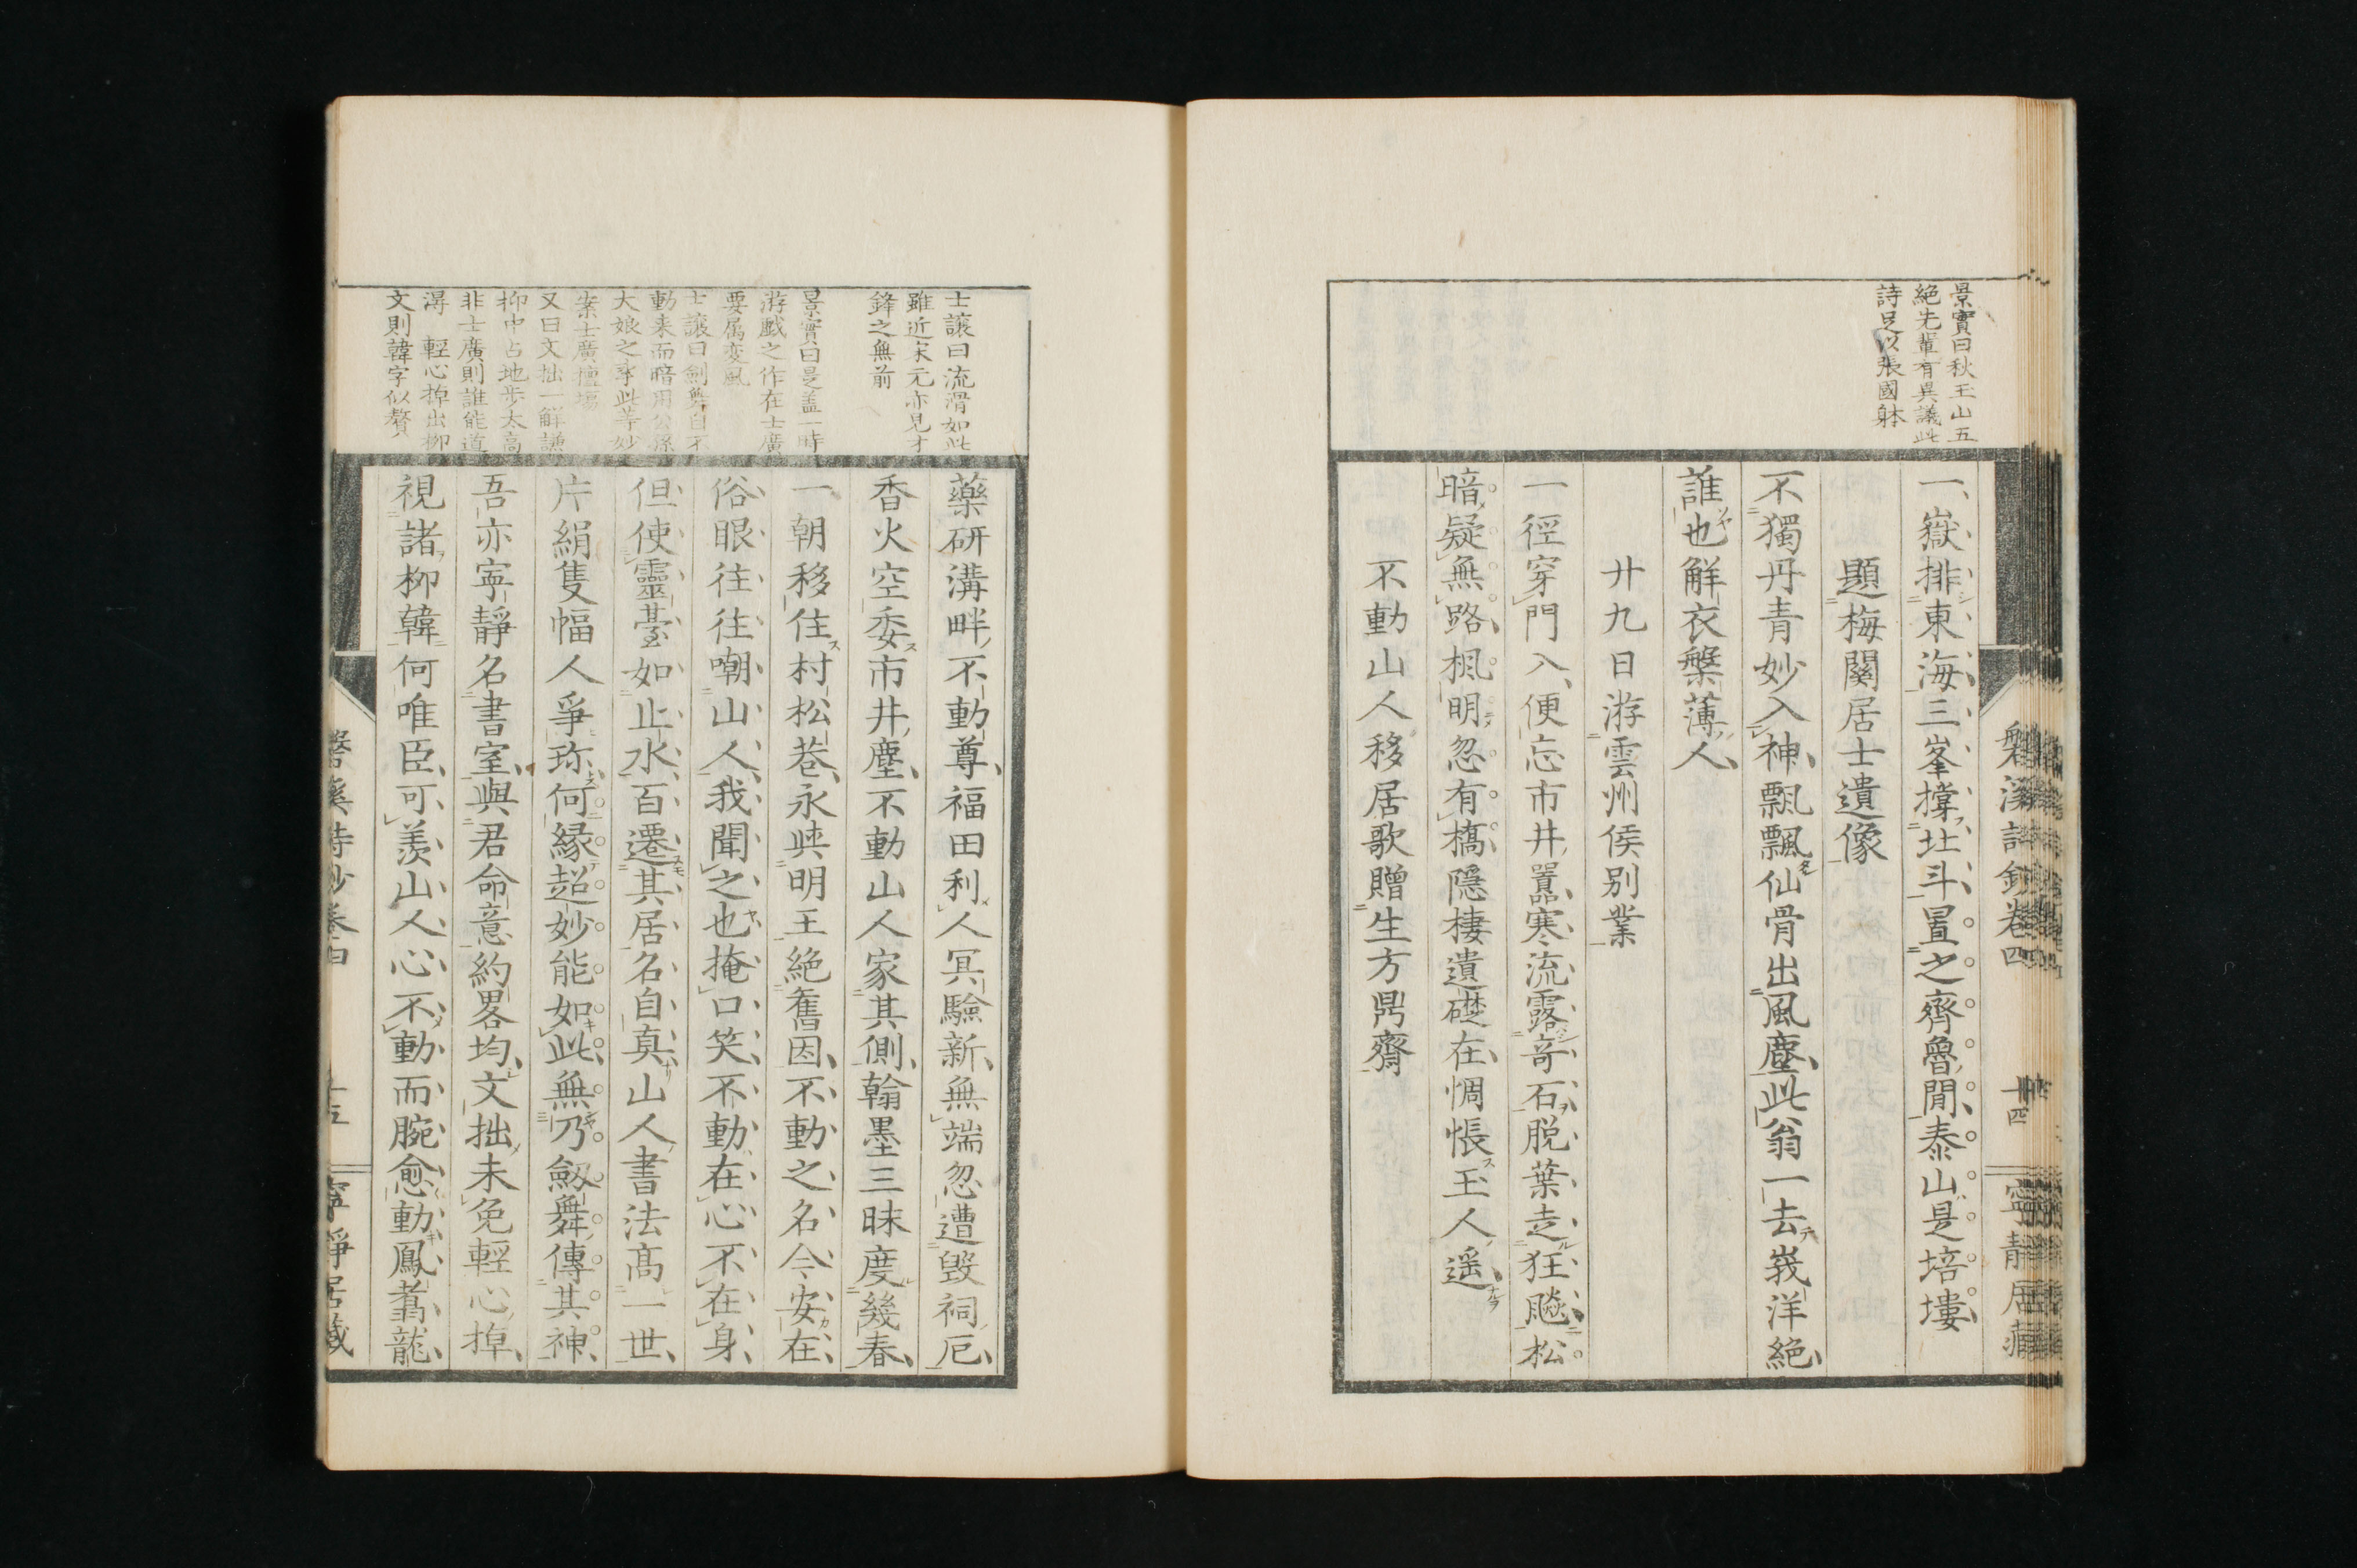 景實曰秋玉山五
絶先輩有異議此
詩足以張國躰
一嶽排東海三峯撐北斗置之齊魯間泰山是培塿
題梅關居士遺像
不獨丹青妙入神飄飄仙骨出風塵此翁一去峩洋絶
誰也解衣槃薄人
廿九日游雲州侯別業
一徑穿門入便忘市井囂寒流露奇石脱葉走狂飈松
暗疑無路楓明忽有橋隱棲遺礎在惆悵玉人遥
不動山人移居歌贈生方鼎齋
磐溪詩鈔卷四
十四
寧靜居藏
士讓曰流滑如此
雖近宋元亦見才
鋒之無前
景實曰是盖一時
游戲之作在士廣
要属変風
士讓曰劍舞自不
動来而暗用公孫
大娘之事此等妙
案士廣擅塲
又曰文拙一解謙
抑中占地步太高
非士廣則誰能道
淂 輕心掉出柳
文則韓字似贅
藥研溝畔不動尊福田利人冥驗新無端忽遭毀祠厄
香火空委市井塵不動山人家其側翰墨三昧度幾春
一朝移住村松巷永與明王絶舊因不動之名今安在
俗眼往往嘲山人我聞之也掩口笑不動在心不在身
但使靈臺如止水百遷其居名自真山人書法高一世
片絹隻幅人爭珎何縁超妙能如此無乃劔舞傳其神
吾亦寧靜名書室與君命意約畧均文拙未免輕心掉
視諸柳韓何唯臣可羨山人心不動而腕愈動鳳翥龍
磐溪詩鈔卷四
十五
寧靜居藏